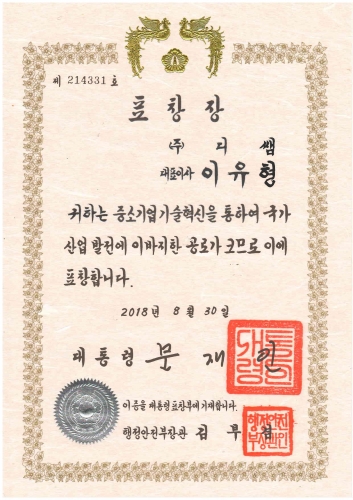 제 214331 호
표 창 장
(주) 디 쌤
대표이사 이 유 형
귀하는 중소기업기술혁신을 통하여 국가
산업 발전에 이바지한 공로가 크므로 이에
표창합니다.
2018년 8월 30일
대통령 문 재 인
대통령의인
이 증을 대통령표창부에 기재합니다.
행정안전부장관 김 부 겸
행정안전부장관인